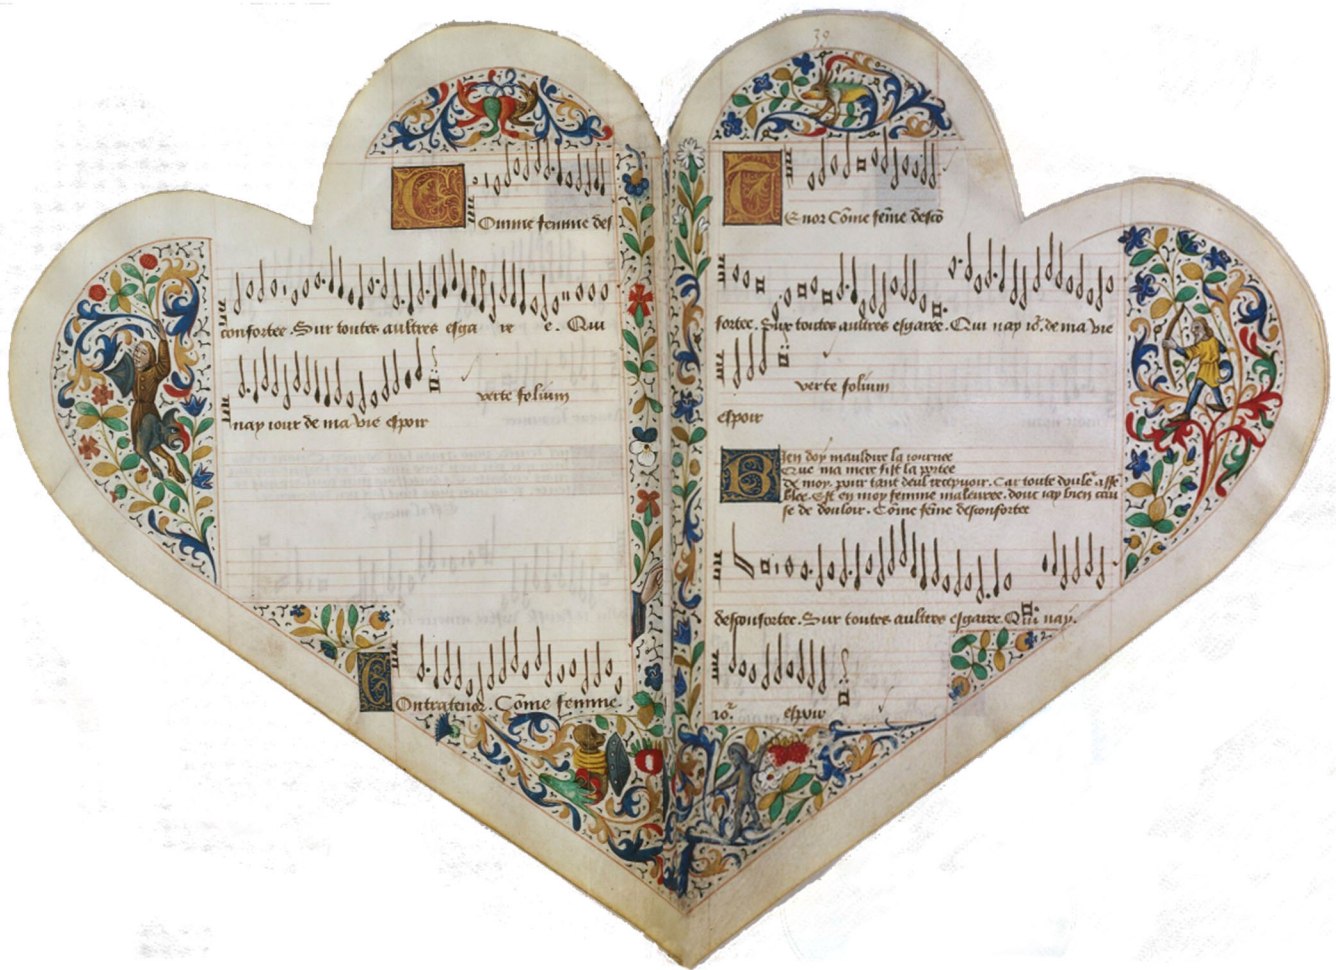 Comme femme des
confortee. Sur toutes aultres esga re e. Qui
nay iour de ma vie espoir
verte folium
Contratenor. Cõme femme
39
Tenor Cõme fẽme descõ
fortee. Sur toutes aultres esgaree. Qui nay io.r de ma vie
espoir
verte folium
Bien doy mauldire la iournee
Que ma mere fist la portee
de moy. pour tant deul recepuoir. Car toute doule.r asse
blee. Est en moy femme maleuree. donc iay bien cau
se de douloir. Cõme fẽme desconfortee
desconfortee. Sur toutes aultres esgaree. Qui nay
io.r espoir